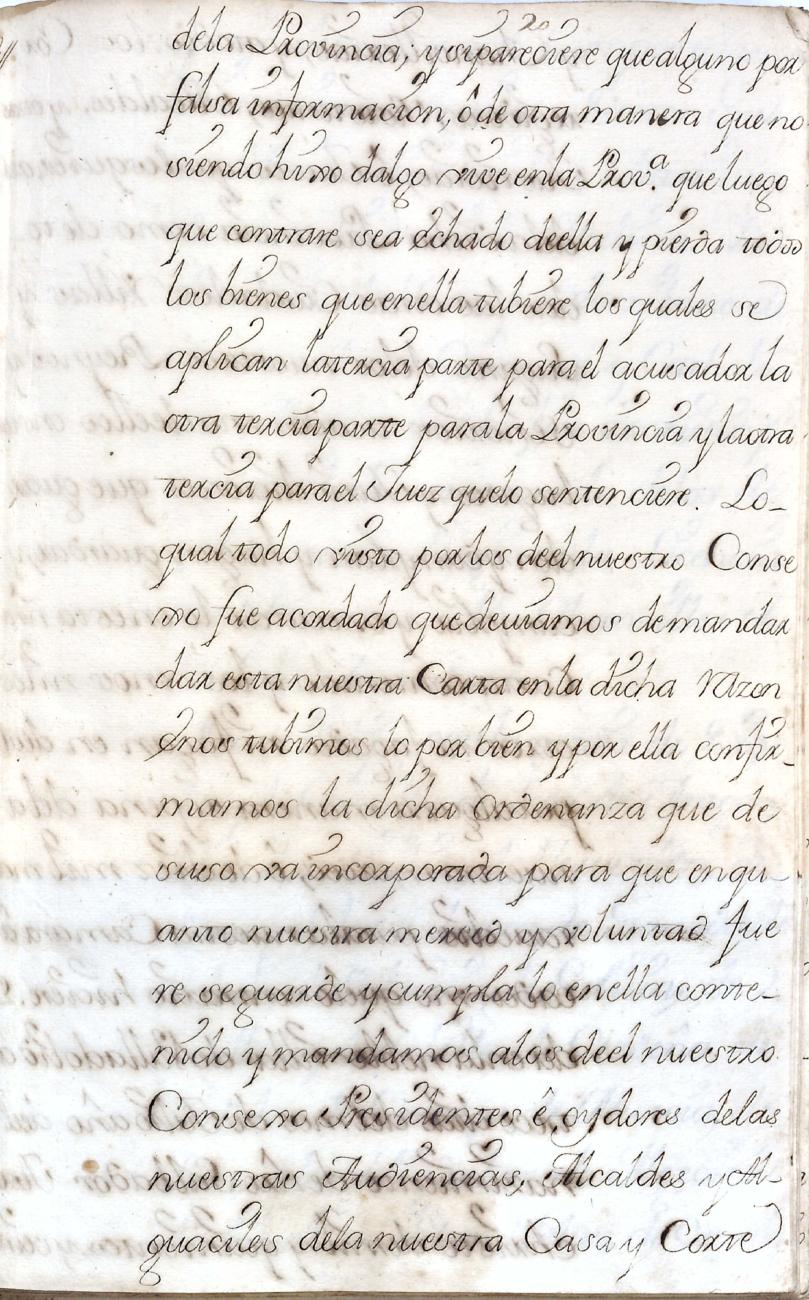 20
dela Provincia; y sipareciere que alguno por
falsa informacion, ô de otra manera que no
siendo hixo dalgo vive enla Prov.ª que luego
que contrare sea echado deella y pierda todos
los bienes que enella tubiere los quales se
aplican la tercia parte para el acusador la
otra tercia parte para la Provincia y la otra
tercia para el Juez quelo sentenciere. Lo-
qual todo visto por los deel nuestro Conse
xo fue acordado que deviamos de mandar
dar esta nuestra Carta en la dicha razon
Enos tubimos lo por bien y por ella confir-
mamos la dicha Ordenanza que de
suso va incorporada para que enqu-
anto nuestra merced y voluntad fue
re se guarde y cumpla lo enella conte-
nido y mandamos alos deel nuestro
Consexo Presidentes ê, oydores delas
nuestras Audiencias, Alcaldes y Al-
guaciles dela nuestra Casa y Corte